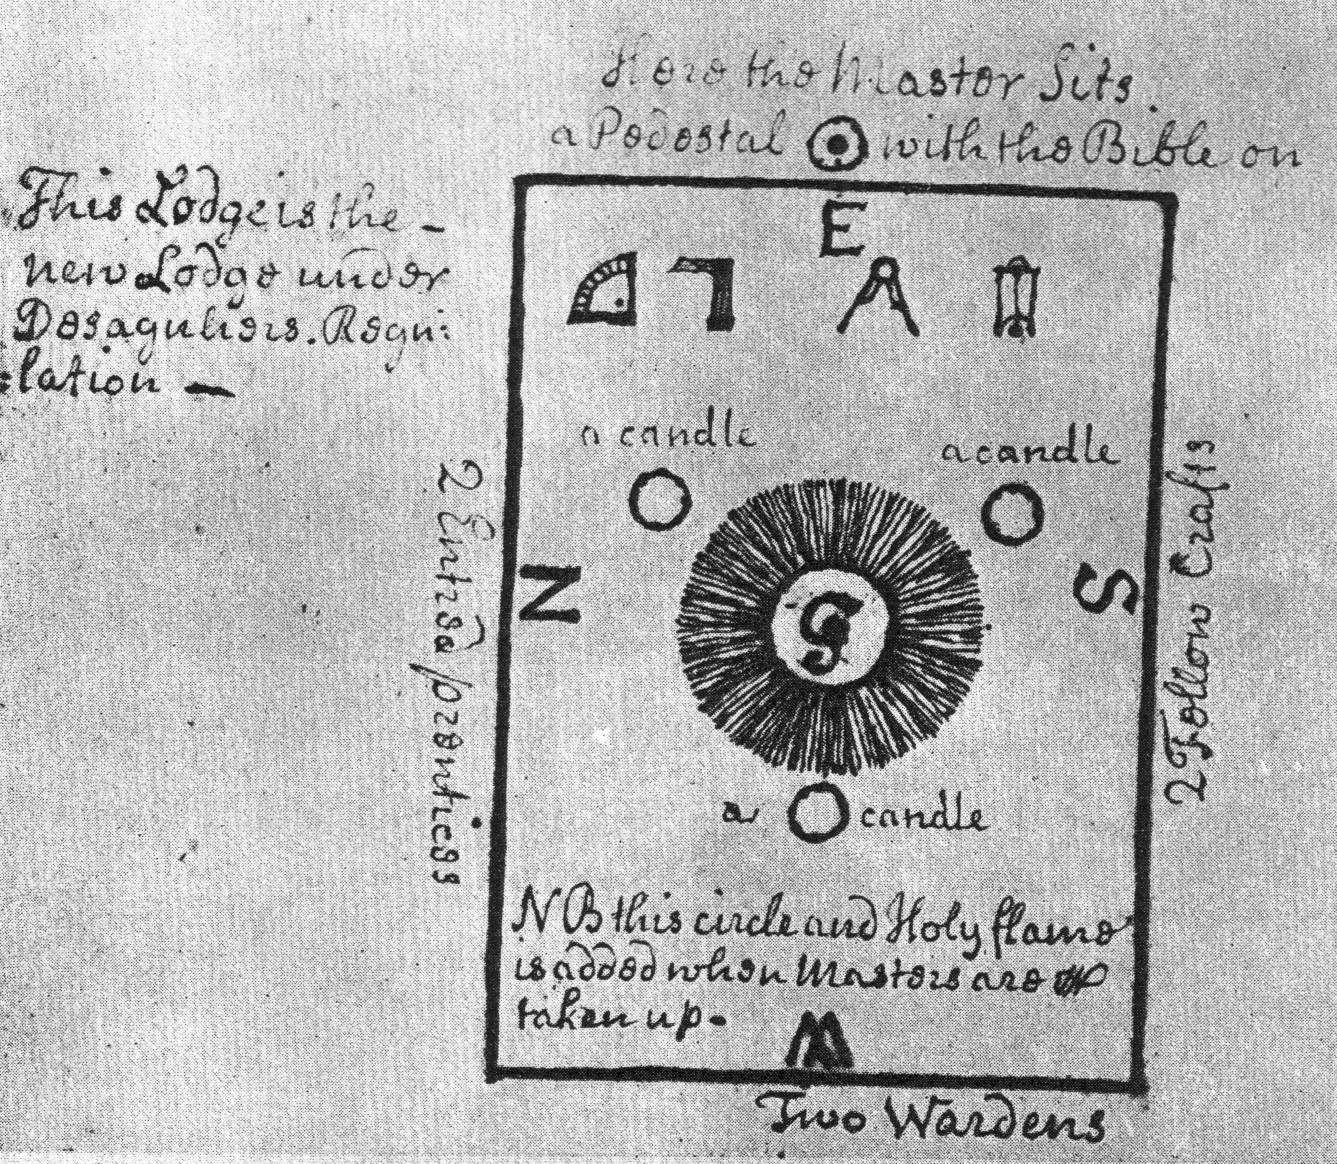 Here the Master Sits.
a Pedestal with the Bible on
This Lodge is the -
new Lodge under
Desaguliers. Regu:
:lation —
E
a candle
a candle
2 Entred prentices
N
G
S
2 Fellow Crafts
a candle
NB this circle and Holy flame
is added when Masters are
taken up.
W
Two Wardens